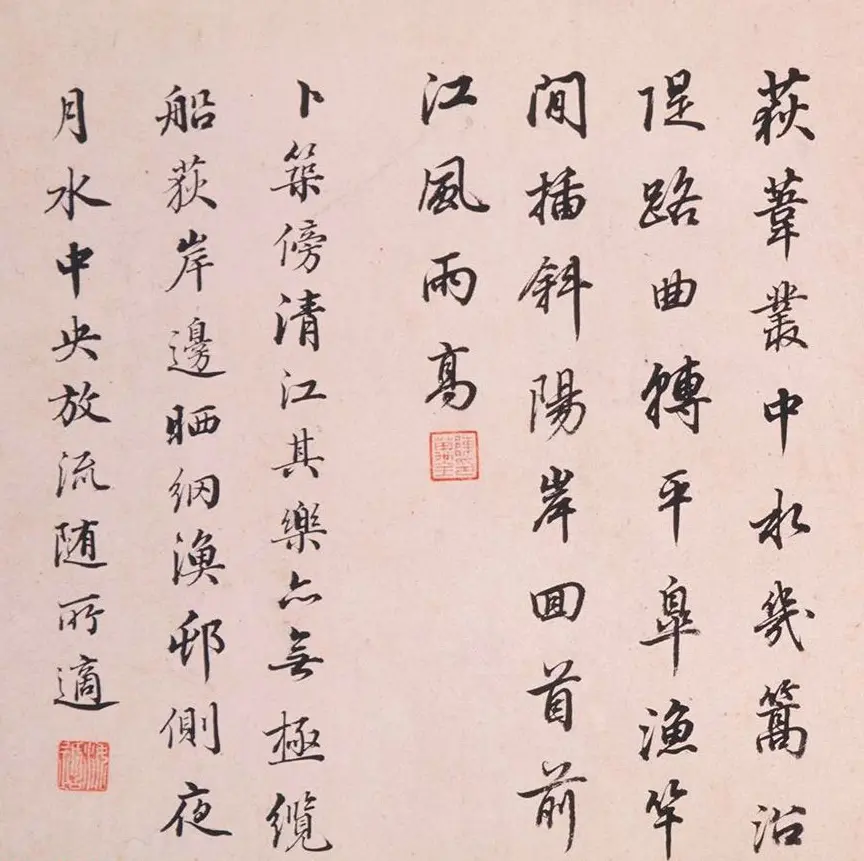 荻葦叢中水幾篙沿
隄路曲轉平皋漁竿
閒插斜陽岸回首前
江風雨高
卜築傍清江其樂亦無極纜
船荻岸邊晒網漁邨側夜
月水中央放流随所適